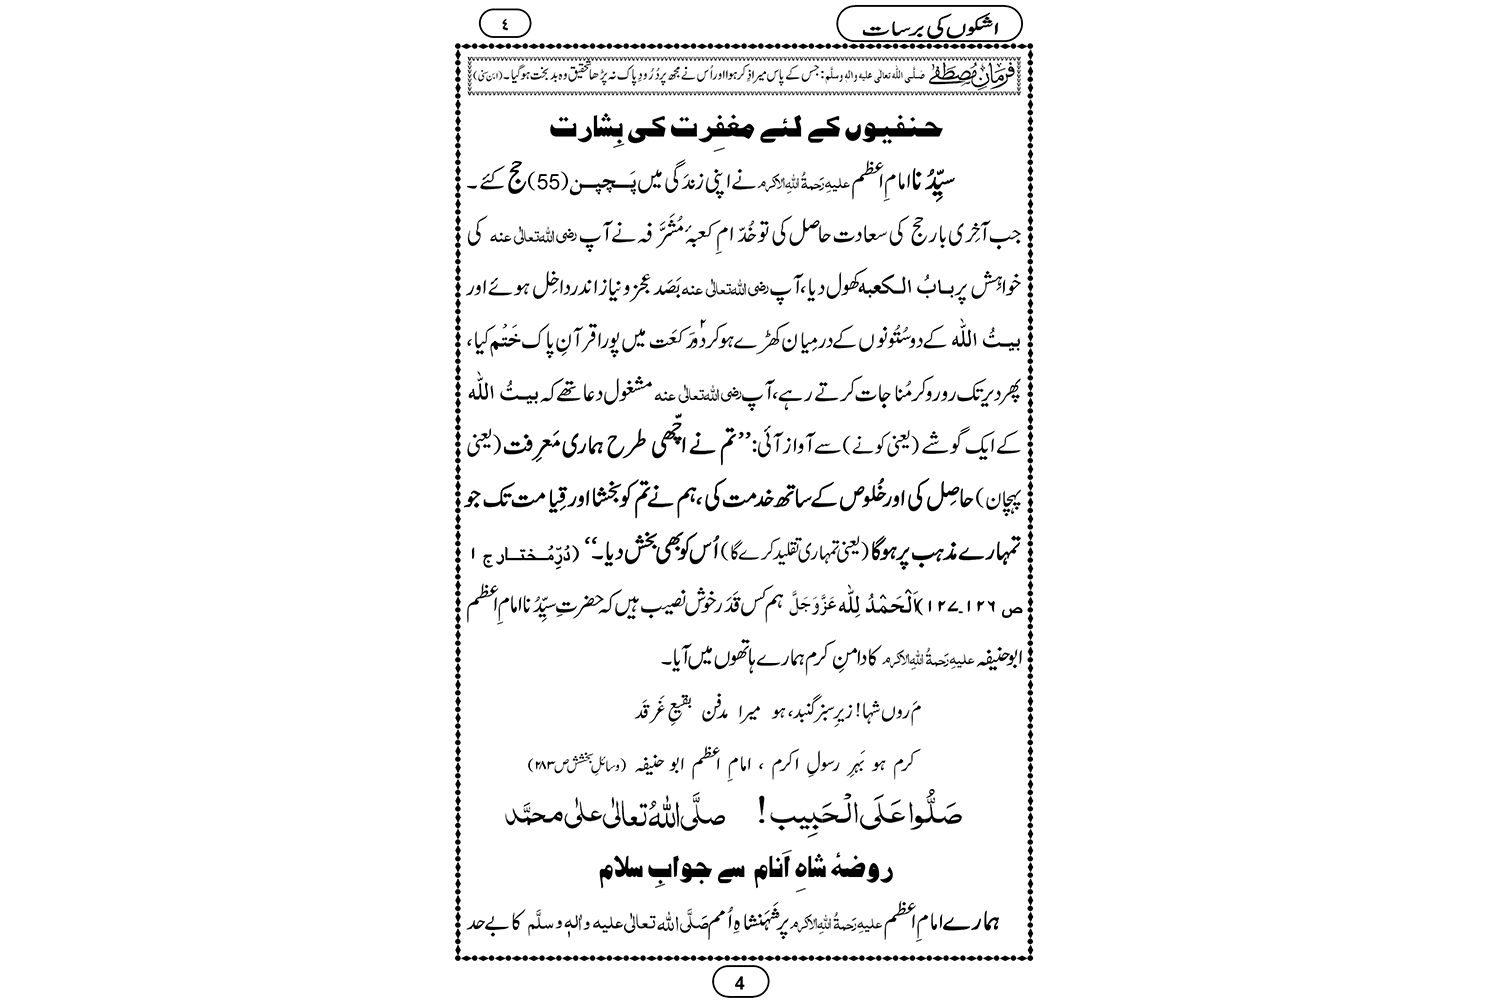 اشکوں کی برسات
٤
فرمانِ مصطفےٰ صلَّی اللہ تعالٰی علیہ واٰلہٖ وسلَّم: جس کے پاس میرا ذِکر ہوا اور اُس نے مجھ پر دُرُودِ پاک نہ پڑھا تحقیق وہ بد بخت ہوگیا۔ (ابن سنی)
حنفیوں کے لئے مغفِرت کی بِشارت
سیِّدُنا امامِ اعظم علیہ رَحمۃُ اللہِ الاکرم نے اپنی زندَگی میں پَچپن (55) حج کئے۔
جب آخِری بار حج کی سعادت حاصل کی تو خُدّامِ کعبۂ مُشَرَّفہ نے آپ رضی اللہ تعالٰی عنہ کی
خواہِش پر بابُ الکعبہ کھول دیا، آپ رضی اللہ تعالٰی عنہ بَصَد عجز و نیاز اندر داخِل ہوئے اور
بیتُ اللہ کے دو سُتُونوں کے درمِیان کھڑے ہو کر دو۲ رَکعَت میں پورا قرآنِ پاک خَتْم کیا،
پھر دیر تک رو رو کر مُناجات کرتے رہے، آپ رضی اللہ تعالٰی عنہ مشغول دعا تھے کہ بیتُ اللہ
کے ایک گوشے (یعنی کونے) سے آواز آئی: ’’تم نے اچّھی طرح ہماری مَعرِفت (یعنی
پہچان) حاصِل کی اور خُلوص کے ساتھ خدمت کی، ہم نے تم کو بخشا اور قِیامت تک جو
تمہارے مذہب پر ہوگا (یعنی تمہاری تقلید کرے گا) اُس کو بھی بخش دیا۔‘‘ (دُرِّمُختار ج ١
ص ١٢٦۔١٢٧) اَلْحَمْدُ لِلّٰہ عَزَّوَجَلَّ ہم کس قَدَر خوش نصیب ہیں کہ حضرتِ سیِّدُنا امامِ اعظم
ابو حنیفہ علیہ رَحمۃُ اللہِ الاکرم کا دامنِ کرم ہمارے ہاتھوں میں آیا۔
مَروں شہا! زیرِ سبز گنبد، ہو میرا مدفن بقیعِ غَرقَد
کرم ہو بَہرِ رسولِ اکرم ، امامِ اعظم ابو حنیفہ (وسائلِ بخشش ص۲۸۳)
صَلُّوا عَلَی الْحَبِیب! صلَّی اللہُ تعالٰی علٰی محمَّد
روضۂ شاہِ اَنام سے جوابِ سلام
ہمارے امامِ اعظم علیہ رَحمۃُ اللہِ الاکرم پر شَہَنشاہِ اُمم صَلَّی اللہ تعالٰی علیہ واٰلہٖ وسلَّم کا بے حد
4